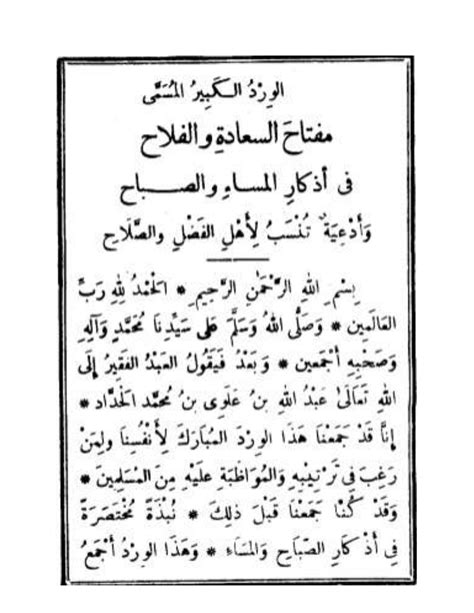 الوِرْدُ الـكَبِيرُ المُسَمَّى
مفتاحَ السعادةِ والفلاح
فى أذكارِ المساءِ والصـبـاح
وَأَدْعِيَةٌ تُنْسَبُ لِأَهْلِ الفَضْلِ والصَّلَاحِ
بِسْمِ اللهِ الرَّحْمٰنِ الرَّحِيمِ * الحَمْدُ لِلهِ رَبِّ
العَالَمِين * وَصَلَّى اللهُ وَسَلَّمَ عَلَى سَيِّدِنَا مُحَمَّدٍ وَآلِهِ
وَصَحْبِهِ أَجْمَعين * وَبَعْدُ فَيَقُولُ العَبْدُ الفَقِيرُ إِلَى
اللهِ تَعَالَى عَبْدُ اللهِ بنُ عَلَوِى بنُ مُحَمَّد الحَدَّاد *
إِنَّا قَدْ جَمَعْنَا هَذَا الوِرْدَ المُبَارَكَ لِأَنْفُسِنَا ولِمَنْ
رَغِبَ فى تَرْتِيبِهِ وَالمُوَاظَبَةِ عَلَيْهِ مِنَ المُسْلِمِين *
وَقَدْ كُنَّا جَمَعْنَا قَبْلَ ذلِكَ * نُبْذَةً مُخْتَصَرَةً
فى أَذْكَارِ الصَّبَاحِ وَالمَسَاءِ * وَهَذَا الوِرْدُ أَجْمَعُ